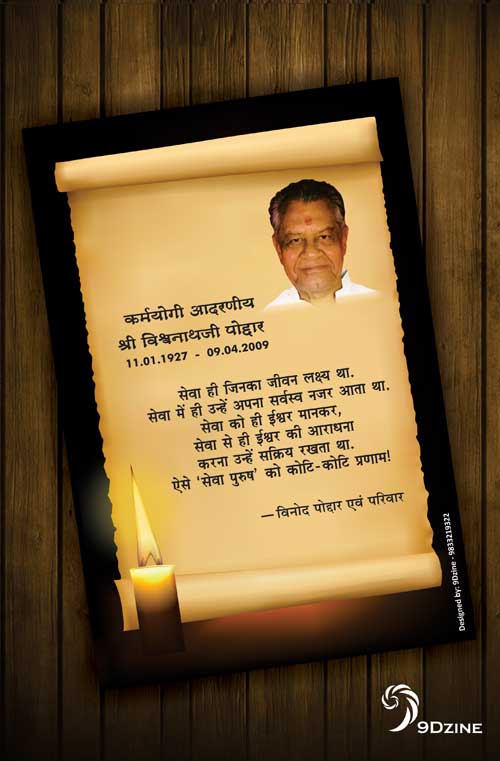 कर्मयोगी आदरणीय
श्री विश्वनाथजी पोद्दार
11.01.1927 - 09.04.2009
सेवा ही जिनका जीवन लक्ष्य था.
सेवा में ही उन्हें अपना सर्वस्व नजर आता था.
सेवा को ही ईश्वर मानकर,
सेवा से ही ईश्वर की आराधना
करना उन्हें सक्रिय रखता था.
ऐसे ‘सेवा पुरुष’ को कोटि-कोटि प्रणाम!
—विनोद पोद्दार एवं परिवार
Designed by: 9Dzine - 9833219322
9DZINE